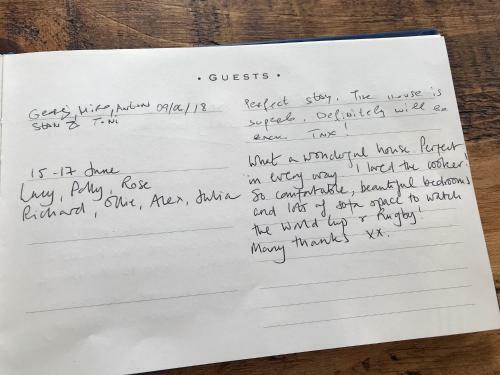 • GUESTS •
Georg, Mike, Anton 09/06/18
Stan & Toni
Perfect stay. The house is
superb. Definitely will be
back. Tnx!
15-17 June
Lucy, Polly, Rose
Richard, Ollie, Alex, Julia
What a wonderful house. Perfect
in every way. I loved the cooker!
So comfortable, beautiful bedrooms
and lots of sofa space to watch
the world cup & Rugby!
Many thanks xx.